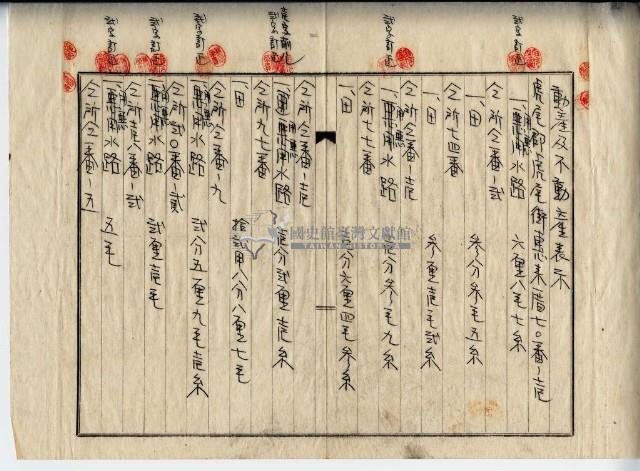 動產及不動產表示
虎尾郡虎尾街惠来厝七〇番ノ壱
一、用惡水路 六厘八毛七糸
仝所仝番ノ弐
一、田 参分参毛五糸
仝所七四番
一、田 参厘壱毛弐糸
仝所仝番ノ壱
一、用惡水路 壱分参毛九糸
仝所七七番
一、田 壱分六厘四毛参糸
仝所仝番ノ壱
一、用惡水路 壱分弐厘壱糸
仝所九七番
一、田 拾弐甲八分八厘七毛
仝所仝番ノ九
一、用惡水路 弐分五厘九毛壱糸
仝所弐〇番ノ弐
一、用惡水路 弐厘壱毛
仝所壱八番ノ弐
用惡水路 五毛
仝所仝番ノ五
弐字訂正
弐字訂正
弐字訂正
弐字訂正
弐字訂正
國史館臺灣文獻館
TAIWAN HISTORICA